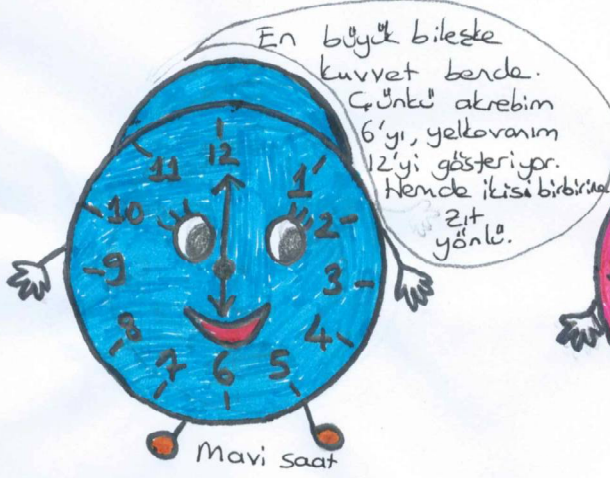 En büyük bileşke
kuvvet bende.
Çünkü akrebim
6'yı, yelkovanım
12'yi gösteriyor.
Hemde ikisi birbirine
zıt
yönlü.
11 12 1
10 2
9 3
8 4
7 6 5
Mavi saat